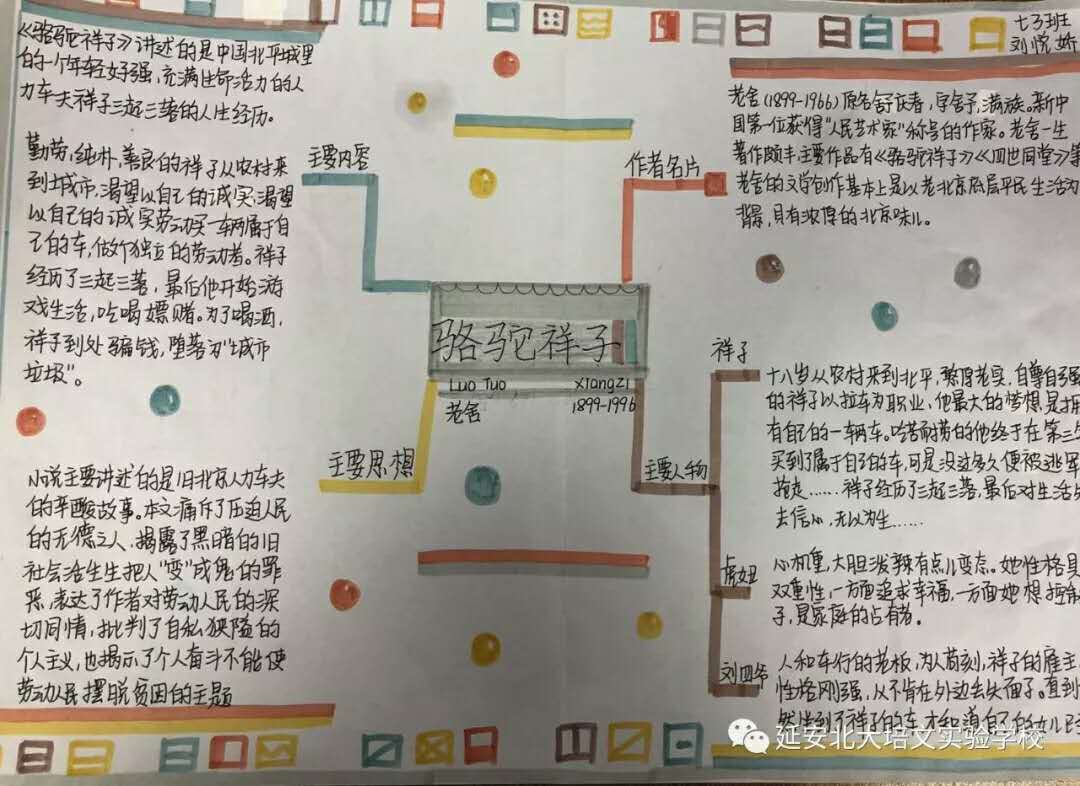 七3班
刘悦娇
《骆驼祥子》讲述的是中国北平城里
的一个年轻好强,充满生命活力的人
力车夫祥子三起三落的人生经历。
勤劳,纯朴,善良的祥子从农村来
到城市,渴望以自己的诚实,渴望
以自己的诚实劳动买一车辆属于自
己的车,做个独立的劳动者。祥子
经历了三起三落,最后他开始游
戏生活,吃喝嫖赌。为了喝酒,
祥子到处骗钱,堕落为"城市
垃圾"。
主要内容
作者名片
老舍(1899-1966)原名舒庆春,字舍予,满族。新中
国第一位获得"人民艺术家"称号的作家。老舍一生
著作颇丰主要作品有《骆驼祥子》《四世同堂》等
老舍的文学创作基本上是以老北京底层平民生活为
背景,具有浓厚的北京味儿。
骆驼祥子
Luo Tuo xiangzi
老舍 1899-1996
主要思想
小说主要讲述的是旧北京人力车夫
的辛酸故事。本文痛斥了压迫人民
的无德之人,揭露了黑暗的旧
社会活生生把人"变"成鬼的罪
恶,表达了作者对劳动人民的深
切同情,批判了自私狭隘的
个人主义,也揭示了个人奋斗不能使
劳动人民摆脱贫困的主题
主要人物
祥子
十八岁从农村来到北平,憨厚老实,自尊自强
的祥子以拉车为职业,他最大的梦想是拥
有自己的一辆车。吃苦耐劳的他终于在第三年
买到了属于自己的车,可是没过多久便被逃军
抢走……祥子经历了三起三落,最后对生活失
去信心,无以为生……
虎妞
心机重,大胆泼辣有点儿变态。她性格具
双重性,一方面追求幸福,一方面她想控制
子,是家庭的占有者。
刘四爷
人和车行的老板,为人苛刻,祥子的雇主
性格刚强,从不肯在外边丢失面子。直到
然坐到了祥子的车才知道自己的女儿已
延安北大培文实验学校